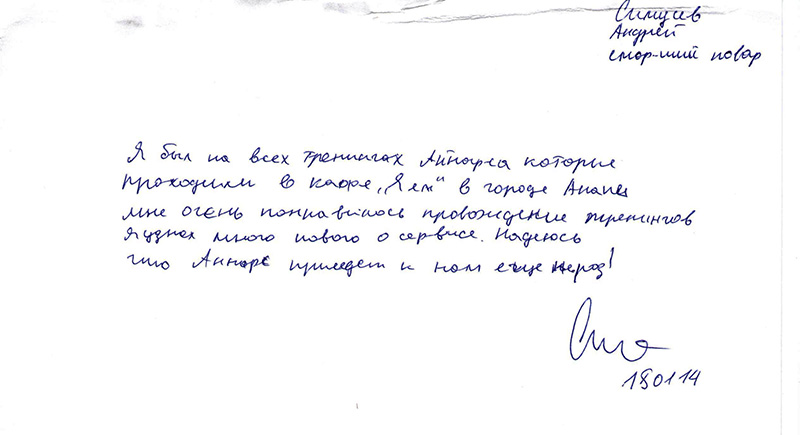 Андрей
повар
Я был на всех тренингах Айнарса которые
проходили в кафе „Я ем“ в городе Анапе
мне очень понравилось провождение тренингов
я узнал много нового о сервисе. Надеюсь
что Айнарс приедет к нам еще не раз!
180114